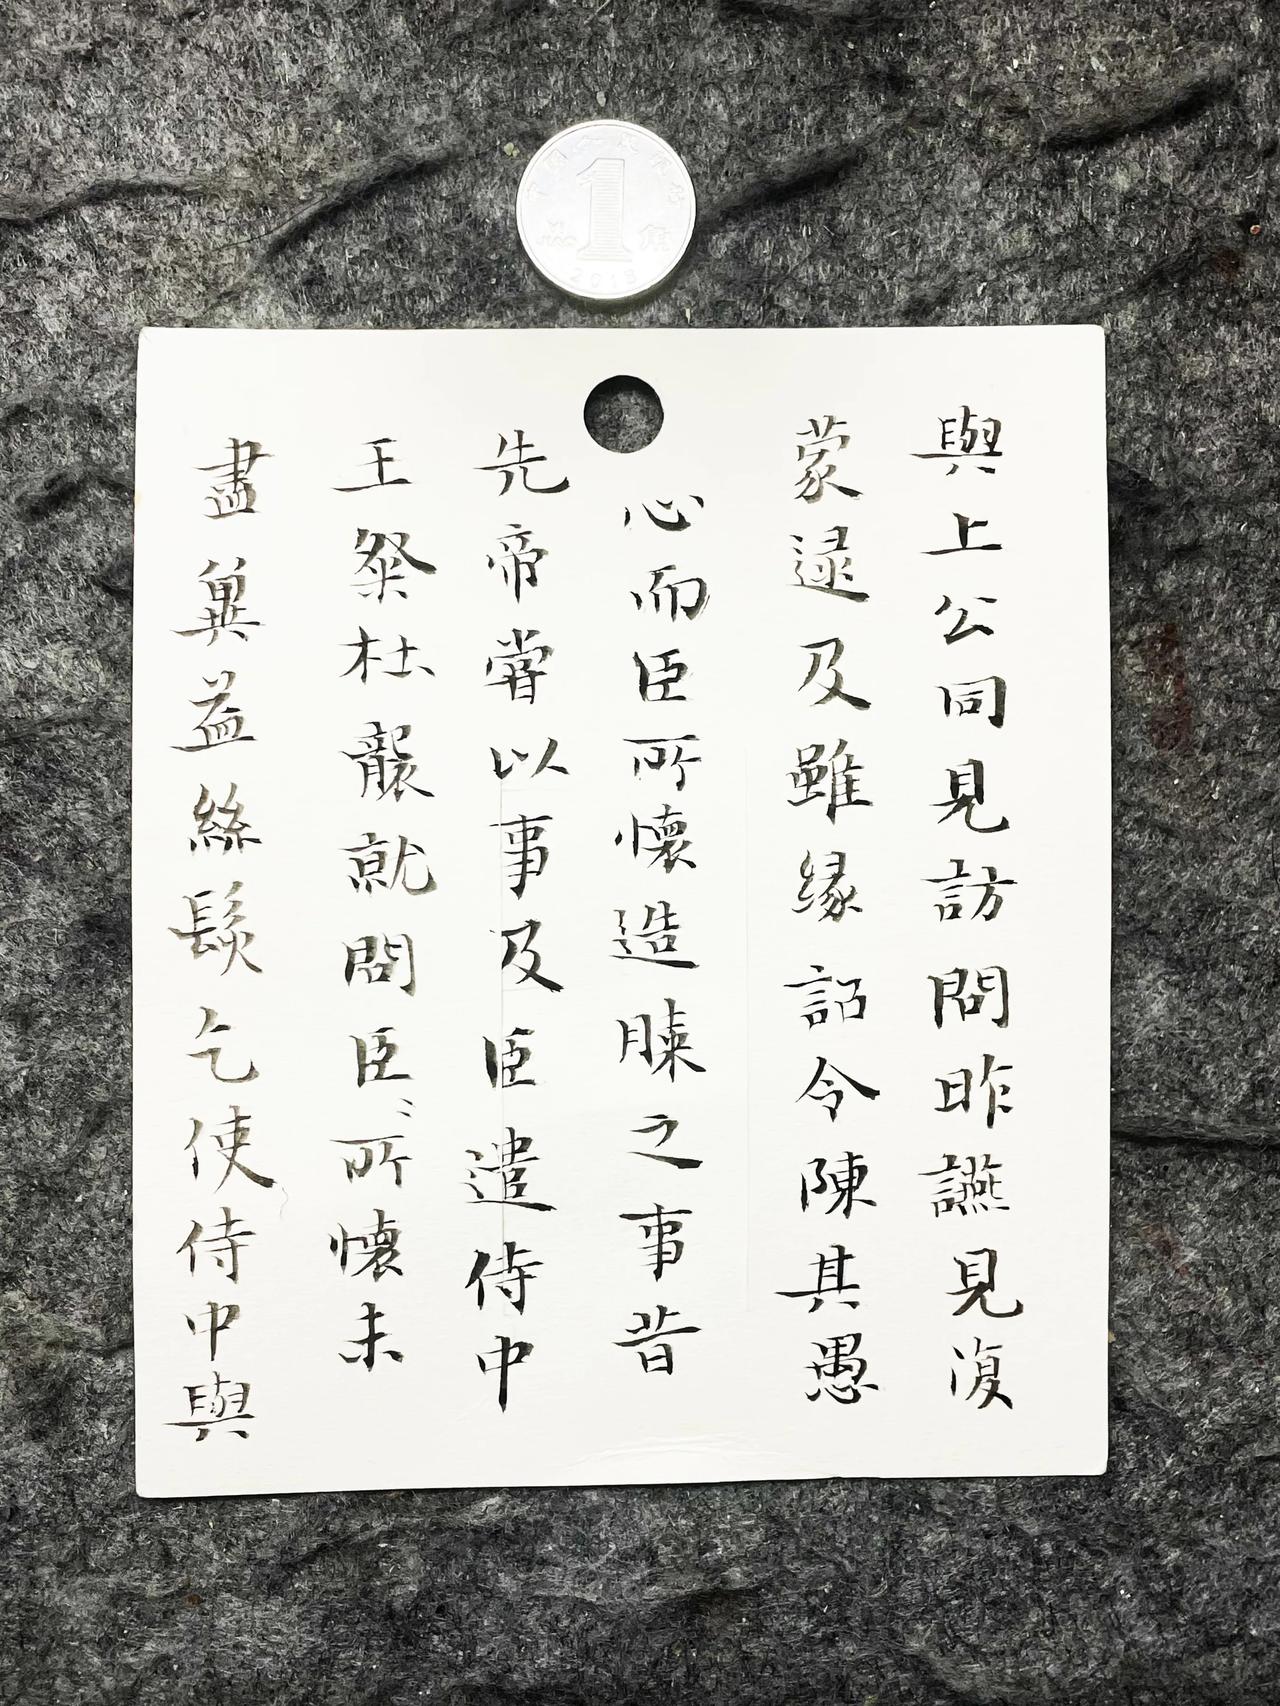 與上公同見訪問昨讌見復
蒙逮及雖緣詔令陳其愚
心而臣所懷造膝之事昔
先帝嘗以事及臣遣侍中
王粲杜襲就問臣〻所懷未
盡冀益絲髮乞使侍中與
中国人民银行
1
角
2013